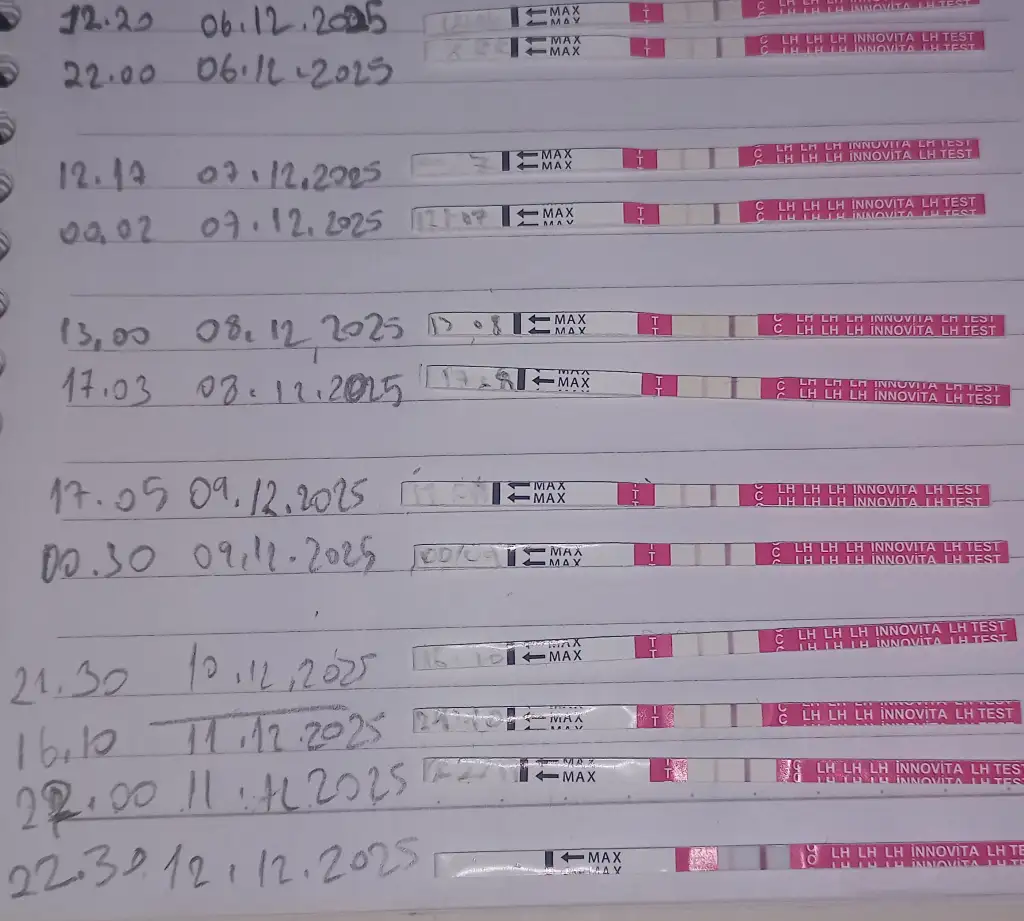 12.20 06.12.2025 ← MAX ← MAX T C LH LH LH INNOVITA LH TEST
22.00 06.12.2025 ← MAX ← MAX T C C LH LH LH INNOVITA LH TEST LH LH LH INNOVITA LH TEST
12.17 07.12.2025 7 ← MAX ← MAX T C C LH LH LH INNOVITA LH TEST LH LH LH INNOVITA LH TEST
00.02 07.12.2025 12 07 ← MAX ← MAX T C C LH LH LH INNOVITA LH TEST LH LH LH INNOVITA LH TEST
13,00 08.12.2025 13 08 ← MAX ← MAX T T C C LH LH LH INNOVITA LH TEST LH LH LH INNOVITA LH TEST
17.03 08.12.2025 17-8 MAX ← MAX T T C LH LH LH INNOVITA LH TEST LH LH LH INNOVITA LH TEST
17.05 09.12.2025 ← MAX ← MAX T T C C LH LH LH INNOVITA LH TEST LH LH LH INNOVITA LH TEST
00.30 09.12.2025 00/09 ← MAX ← MAX T T C C LH LH LH INNOVITA LH TEST LH LH LH INNOVITA LH TEST
21.30 10.12.2025 16 10 MAX ← MAX T T C C LH LH LH INNOVITA LH TEST LH LH LH INNOVITA LH TEST
16.10 11.12.2025 ← MAX ← MAX T T C C LH LH LH INNOVITA LH TEST LH LH LH INNOVITA LH TEST
22.00 11.12.2025 MAX ← MAX T T C LH LH LH INNOVITA LH TES LH LH LH INNOVITA LH TES
22.30 12.12.2025 ← MAX MAX LH LH LH INNOVITA LH TE LH LH LH INNOVITA LH TE